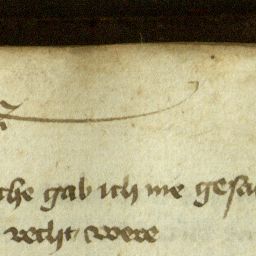 che gab ich me gesa
recht were